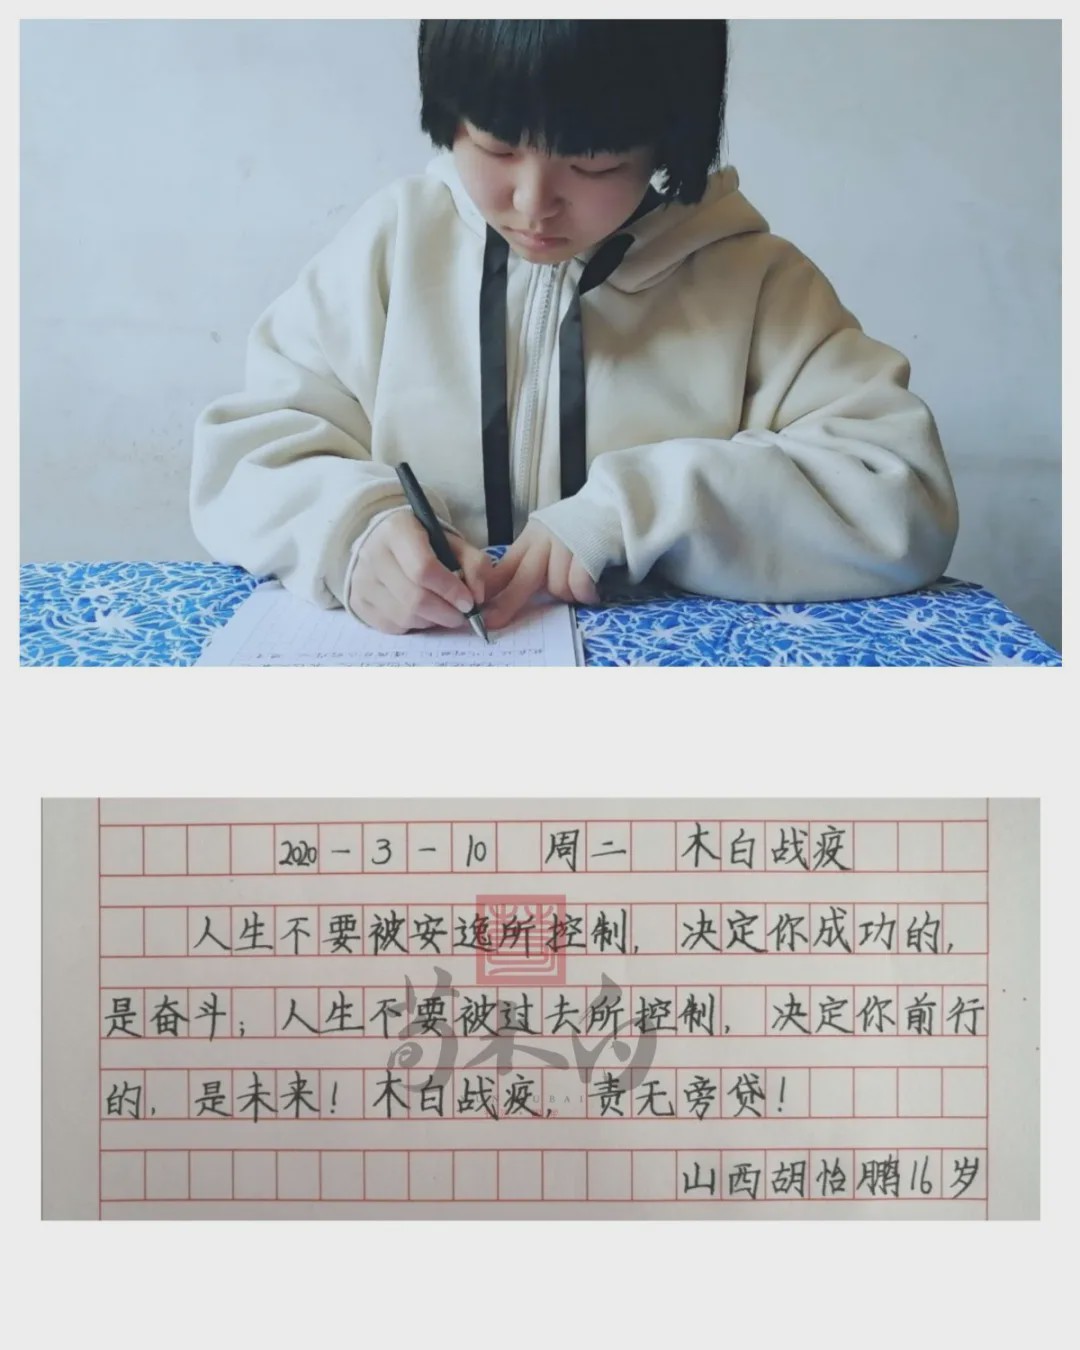 2020-3-10 周二 木白战疫
人生不要被安逸所控制，决定你成功的，
是奋斗；人生不要被过去所控制，决定你前行
的，是未来！木白战疫，责无旁贷！
山西胡怡鹏16岁
荀木白